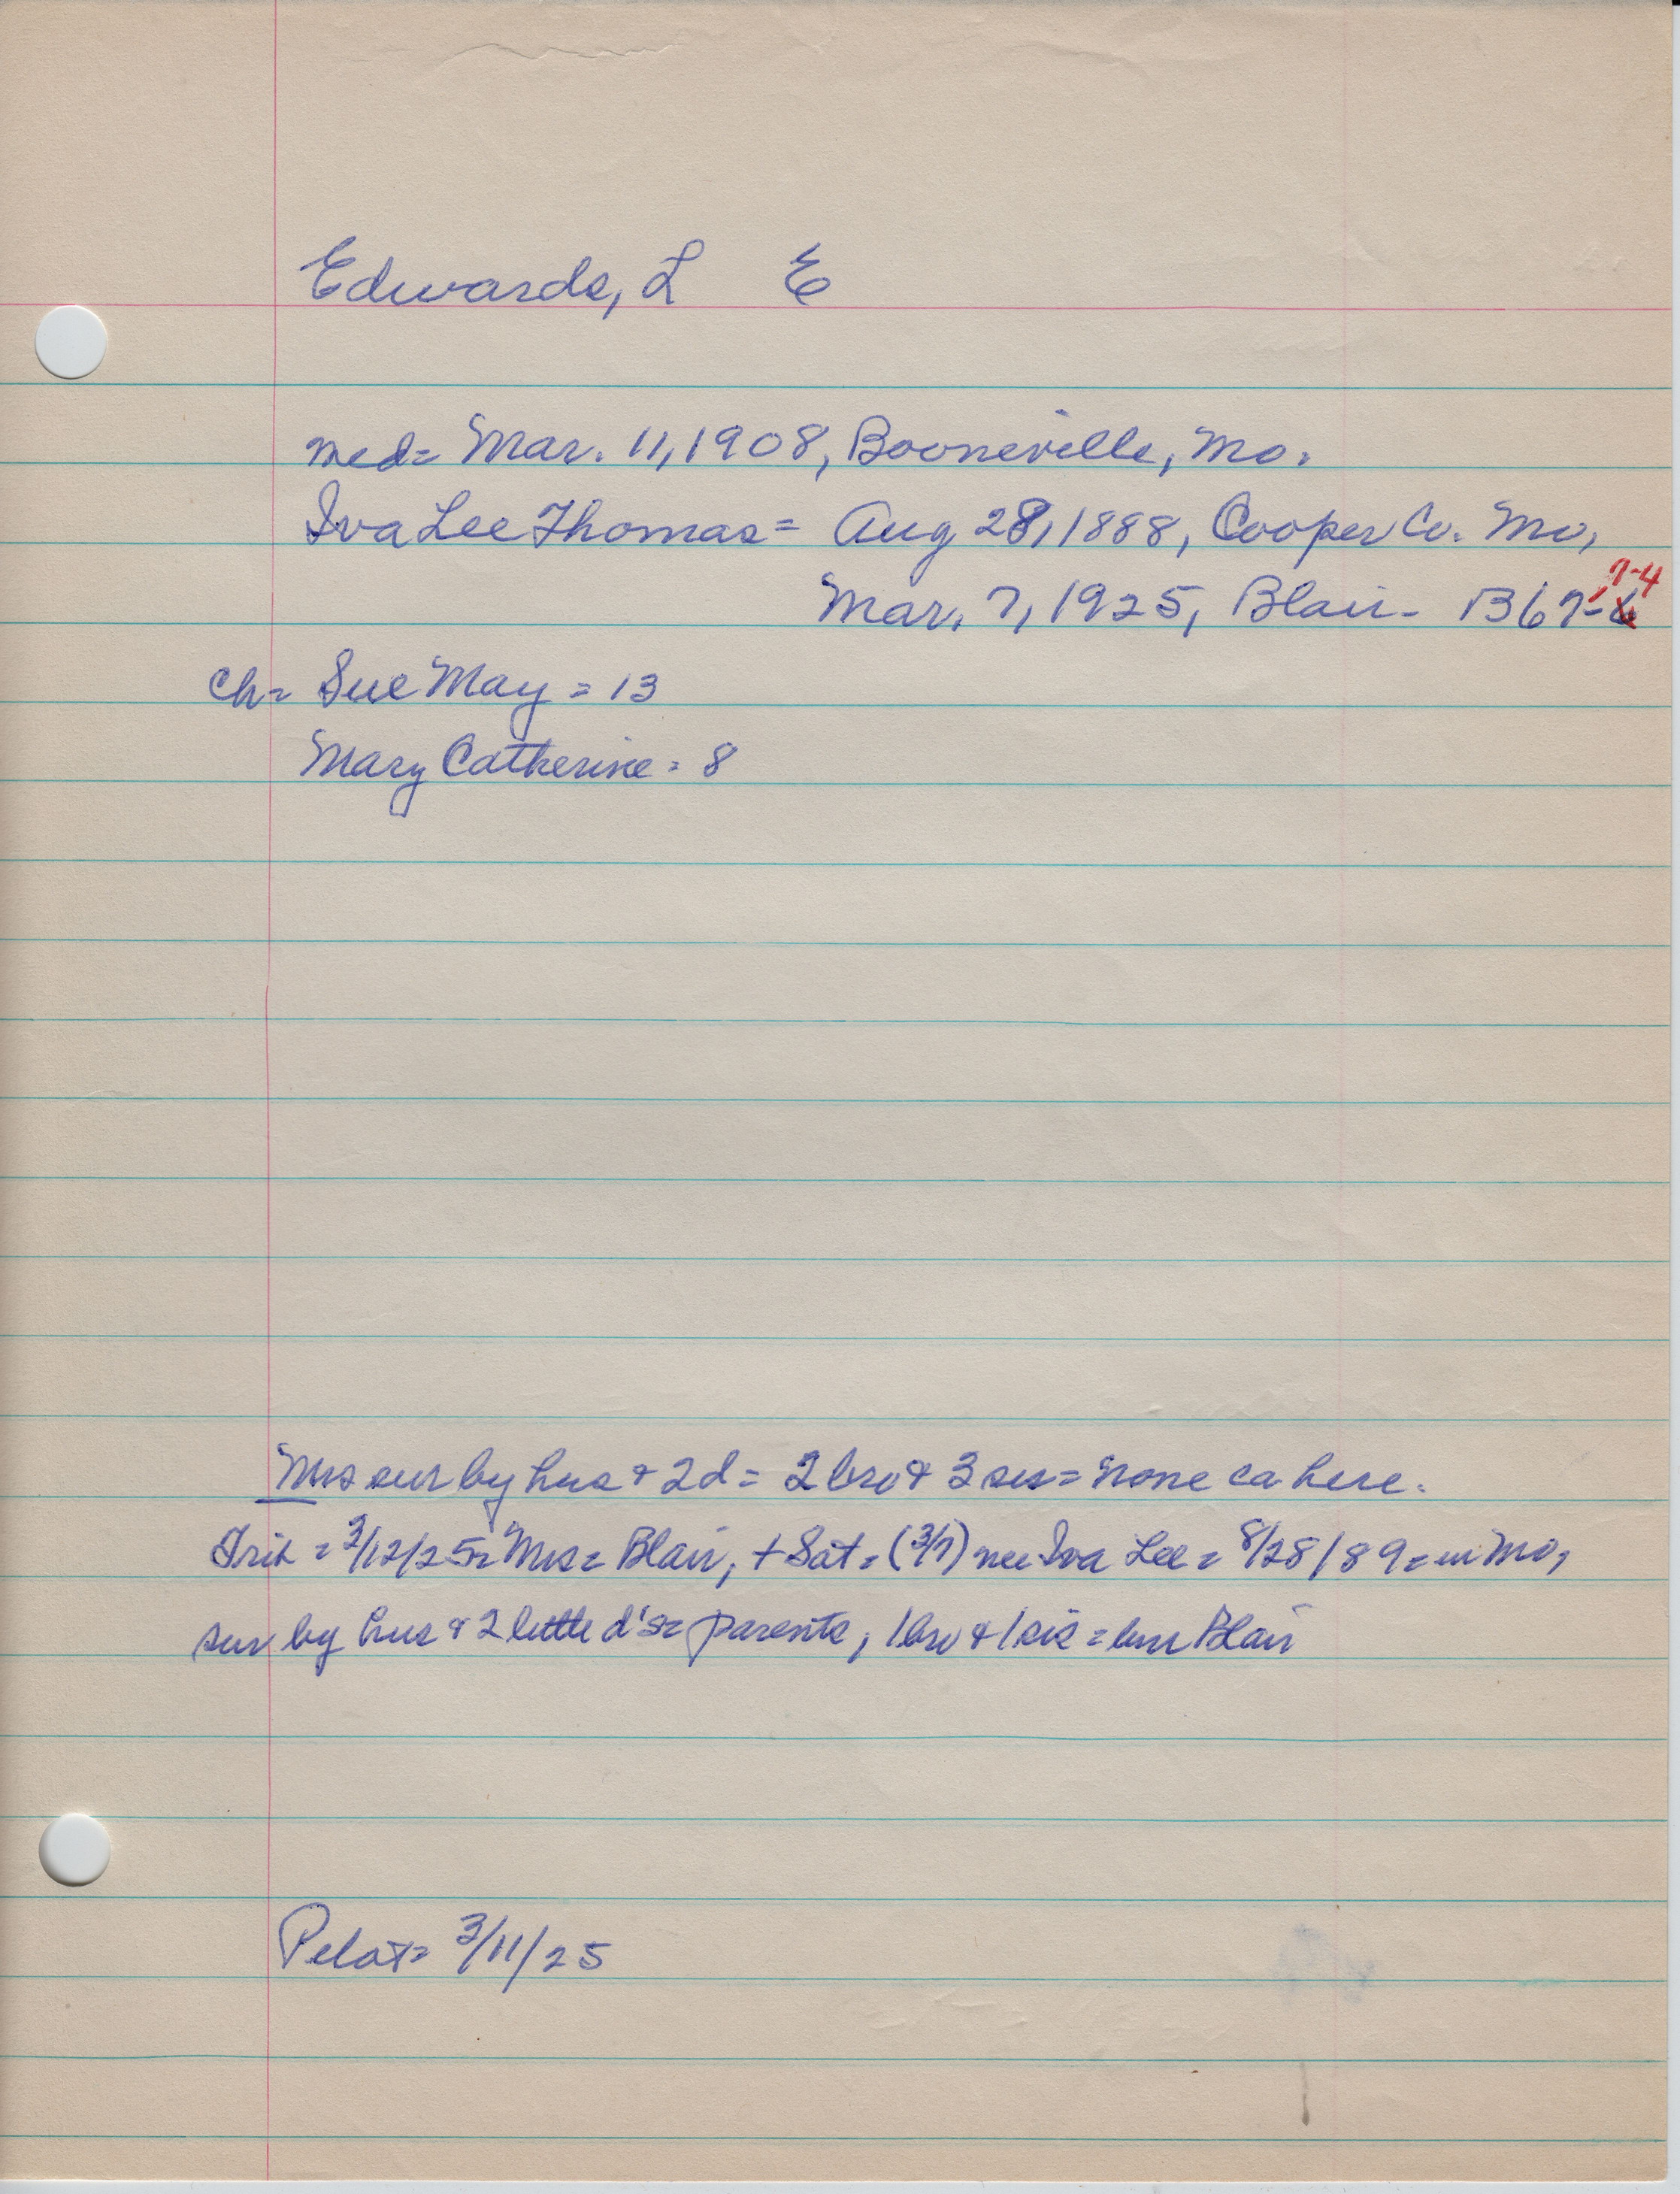 Edwards, L E
med= Mar. 11, 1908, Booneville, Mo.
Iva Lee Thomas= Aug 28, 1888, Cooper Co. Mo,
7-4
Mar. 7, 1925, Blair- B67-6
Ch= Sue May = 13
Mary Catherine = 8
Mrs sur by hus & 2d = 2 bro & 3 sis = none ca here.
Trib = 3/12/25= Mrs= Blair, + Sat = (3/7) nee Iva Lee = 8/28/89 = in Mo,
sur by hus & 2 little d's= parents, 1 bro & 1 sis = bur Blair
Pelot= 3/11/25